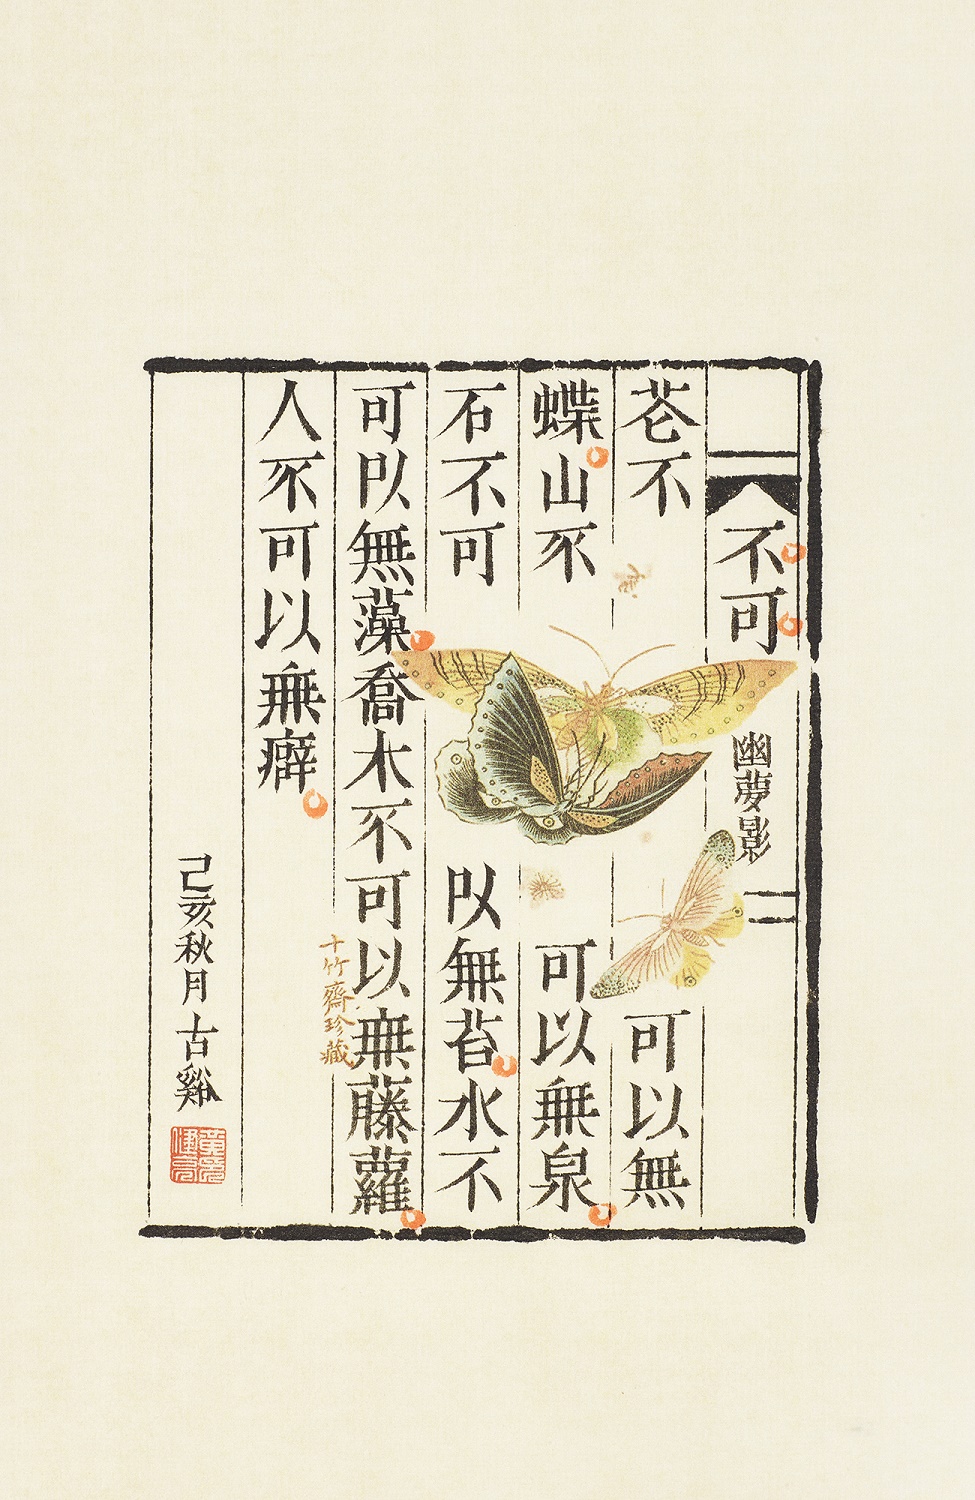 不可
幽夢影
花不可以無
蝶山不可以無泉
石不可以無苔水不
可以無藻喬木不可以無藤蘿
人不可以無癖
十竹齋珍藏
己亥秋月古谿